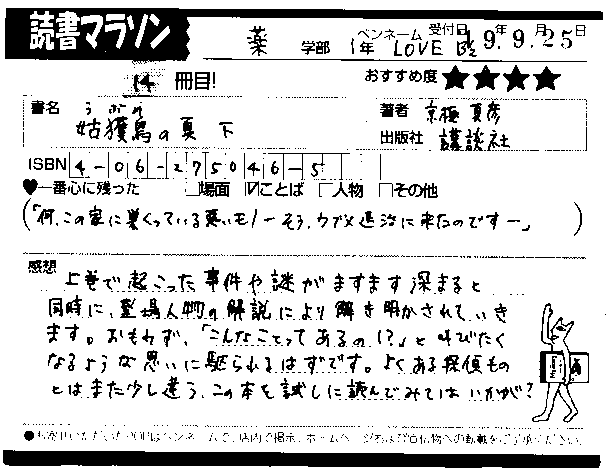 読書マラソン
薬 学部 1年 ペンネーム LOVE B'z 受付日 19年9月25日
14 冊目!
おすすめ度 ★★★★
うぶめ
書名 姑獲鳥の夏 下
著者 京極 夏彦
出版社 講談社
ISBN 4-06-275046-5
♥一番心に残った □場面 ☑ことば □人物 □その他
(「何、この家に巣くっている悪いモノ―そう、ウブメ退治に来たのです―」)
感想
上巻で起こった事件や謎がますます深まると
同時に、登場人物の解説により解き明かされていき
ます。おもわず、「こんなことってあるの!?」と叫びたく
なるような思いに駆られるはずです。よくある探偵もの
とはまた少し違う、この本を試しに読んでみてはいかが?
●お寄せいただいたPOPはペンネームで、店内で掲示、ホームページおよび宣伝物への転載をご了承ください。